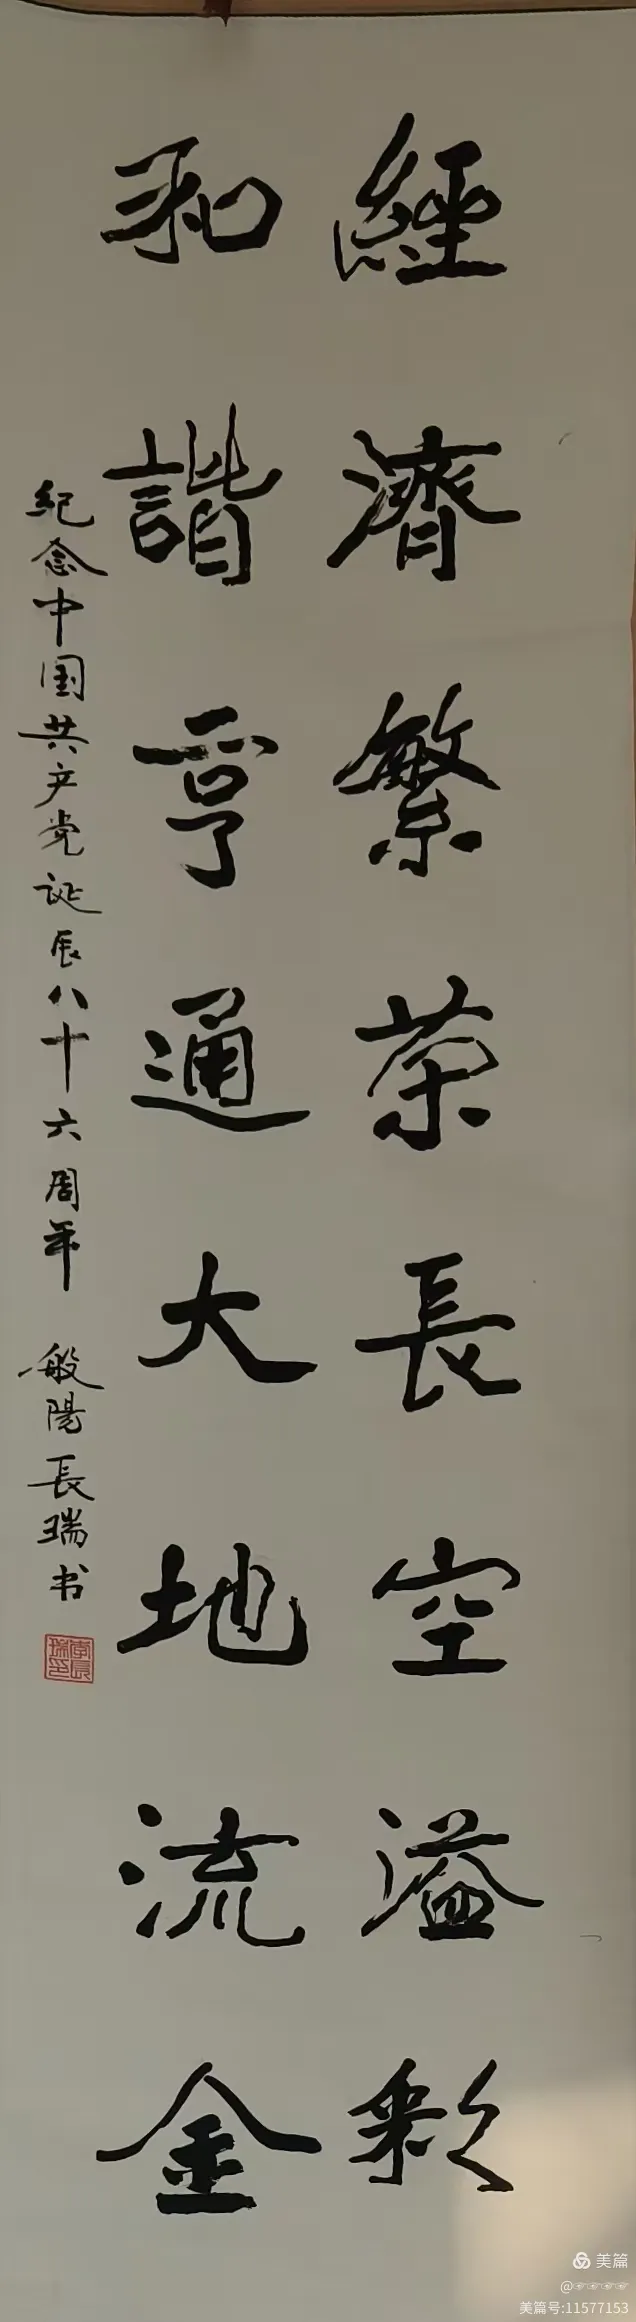 經濟繁荣長空溢彩
和諧亨通大地流金
纪念中国共产党诞辰八十六周年 般陽長瑞书
李長瑞印
美篇
@☞☞☞☞
美篇号:11577153